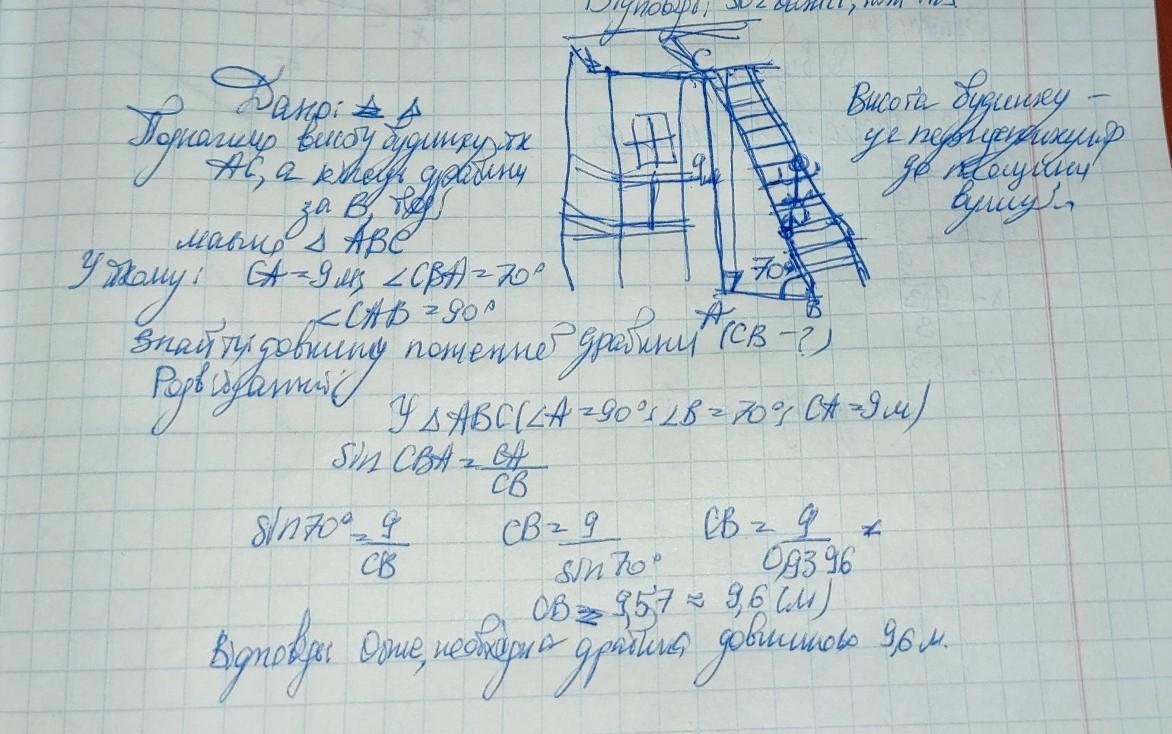 Дано: Δ
Позначимо висоту будинку, як
AC, а кінець драбини
за B, тоді
маємо Δ ABC
У ньому: CA = 9 м, ∠CBA = 70°
∠CAB = 90°
Знайти довжину пожежної драбини (CB - ?)
Розв'язання:
У Δ ABC (∠A = 90°; ∠B = 70°; CA = 9 м)
sin CBA = CA/CB
sin 70° = 9/CB CB = 9/sin 70° CB = 9/0,9396 ≈
CB ≈ 9,57 ≈ 9,6 (м)
Відповідь: Отже, необхідна драбина довжиною 9,6 м.
C
9м
70°
A B
Висота будинку –
це перпендикуляр
до площини
вулиці